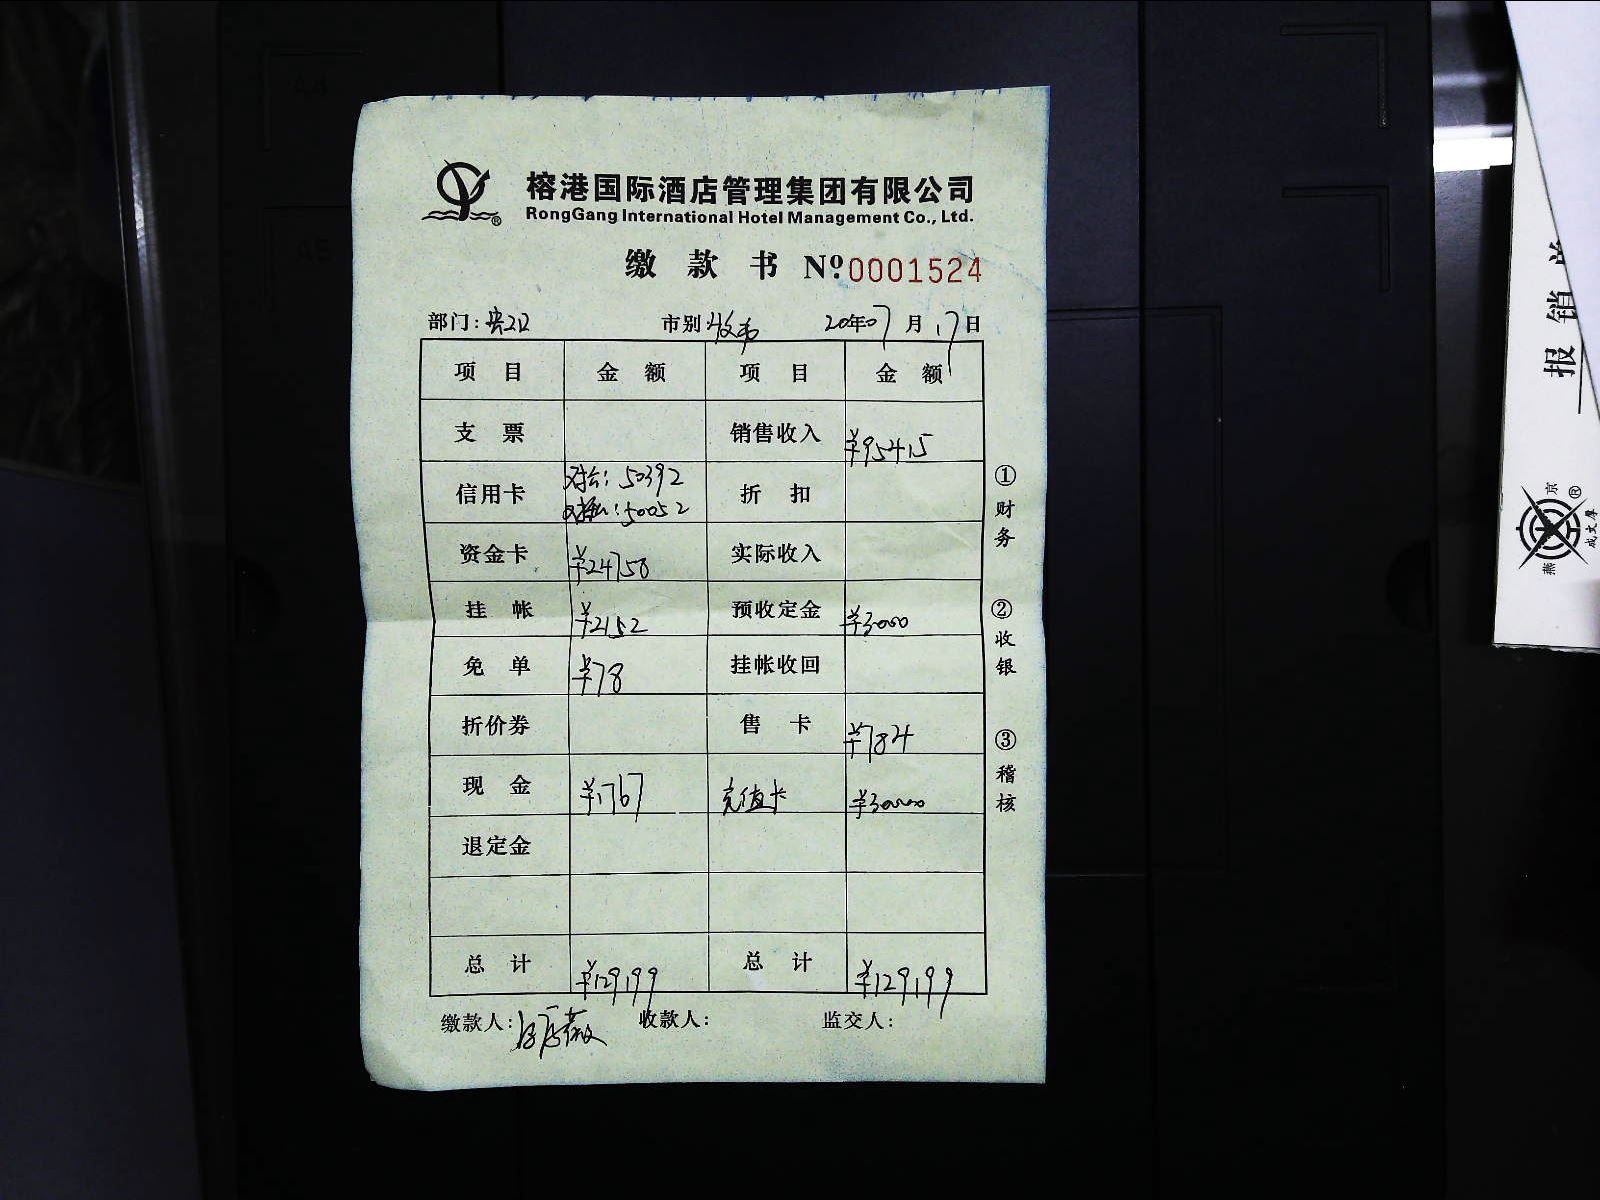 榕港国际酒店管理集团有限公司
RongGang International Hotel Management Co., Ltd.
缴款书 Nº 0001524
部门: 市别 20年07月17日
项目 金额 项目 金额
支票 销售收入 ¥95415
信用卡 50392 折扣
50052
资金卡 ¥24758 实际收入
挂帐 ¥2152 预收定金 ¥3000
免单 ¥78 挂帐收回
折价券 售卡 ¥784
现金 ¥1767 充值卡 ¥30000
退定金
总计 ¥129199 总计 ¥129199
缴款人: 收款人: 监交人:
①财务
②收银
③稽核
报销单
燕京®
成文厚